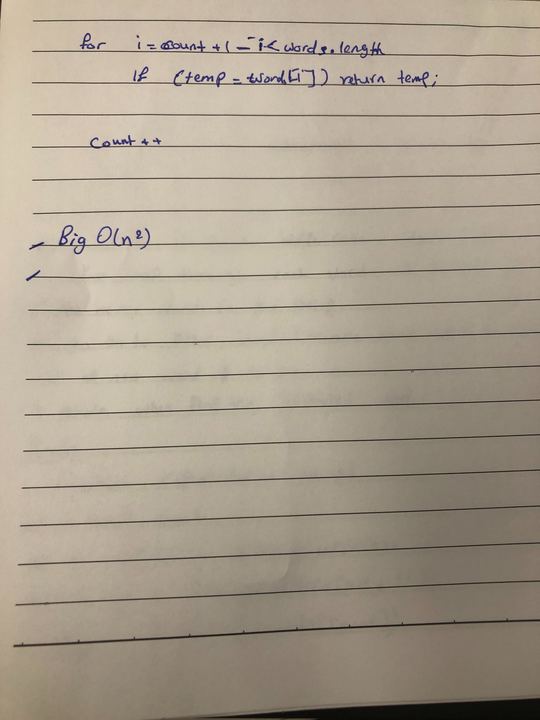 for i = count + 1 – i < words.length
If (temp = word[i]) return temp;
Count ++
– Big O(n²)